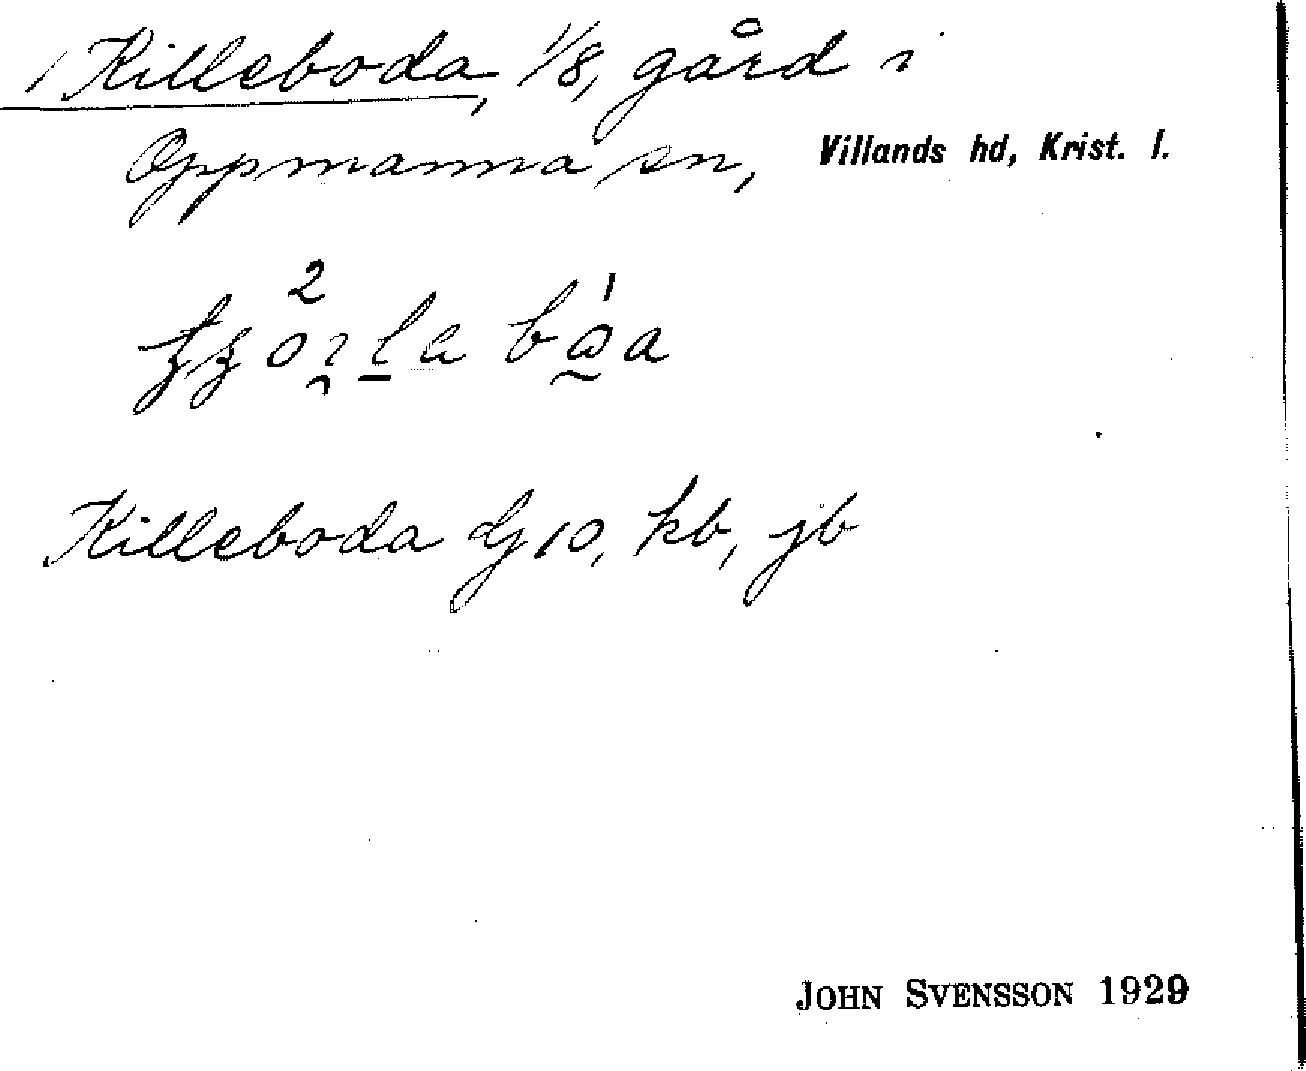 Killeboda, 1/8, gård i
Oppmanna sn, Villands hd, Krist. l.
Killeboda dj 10, kb, jb
JOHN SVENSSON 1929